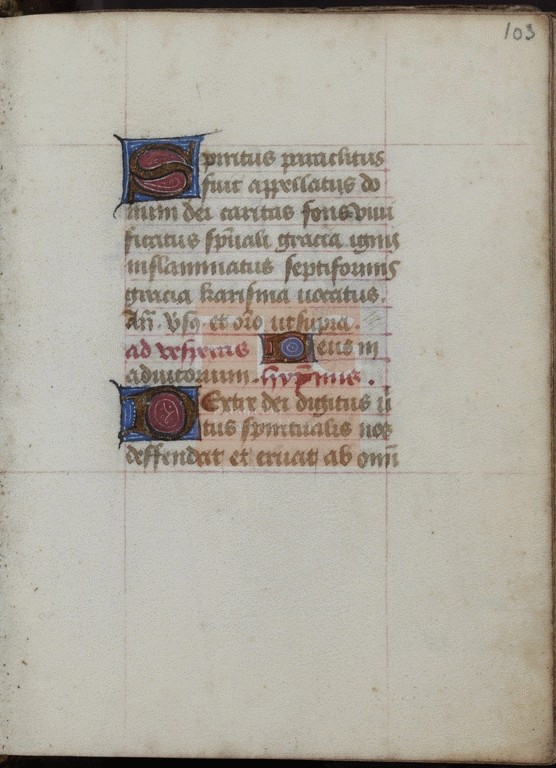 103
Spiritus paraclitus
fuit appellatus do
num dei caritas fons vivi
ficatus sp̄uali gracia ignis
inflammatus septiformis
gracia karisma uocatus.
Añ. v̄sꝯ et or̄o ut supra.
ad vesperas Deus in
adiutorium. hyp̄nus.
Dextre dei digitus uir
tus spiritualis nos
deffendat et eruat ab omī